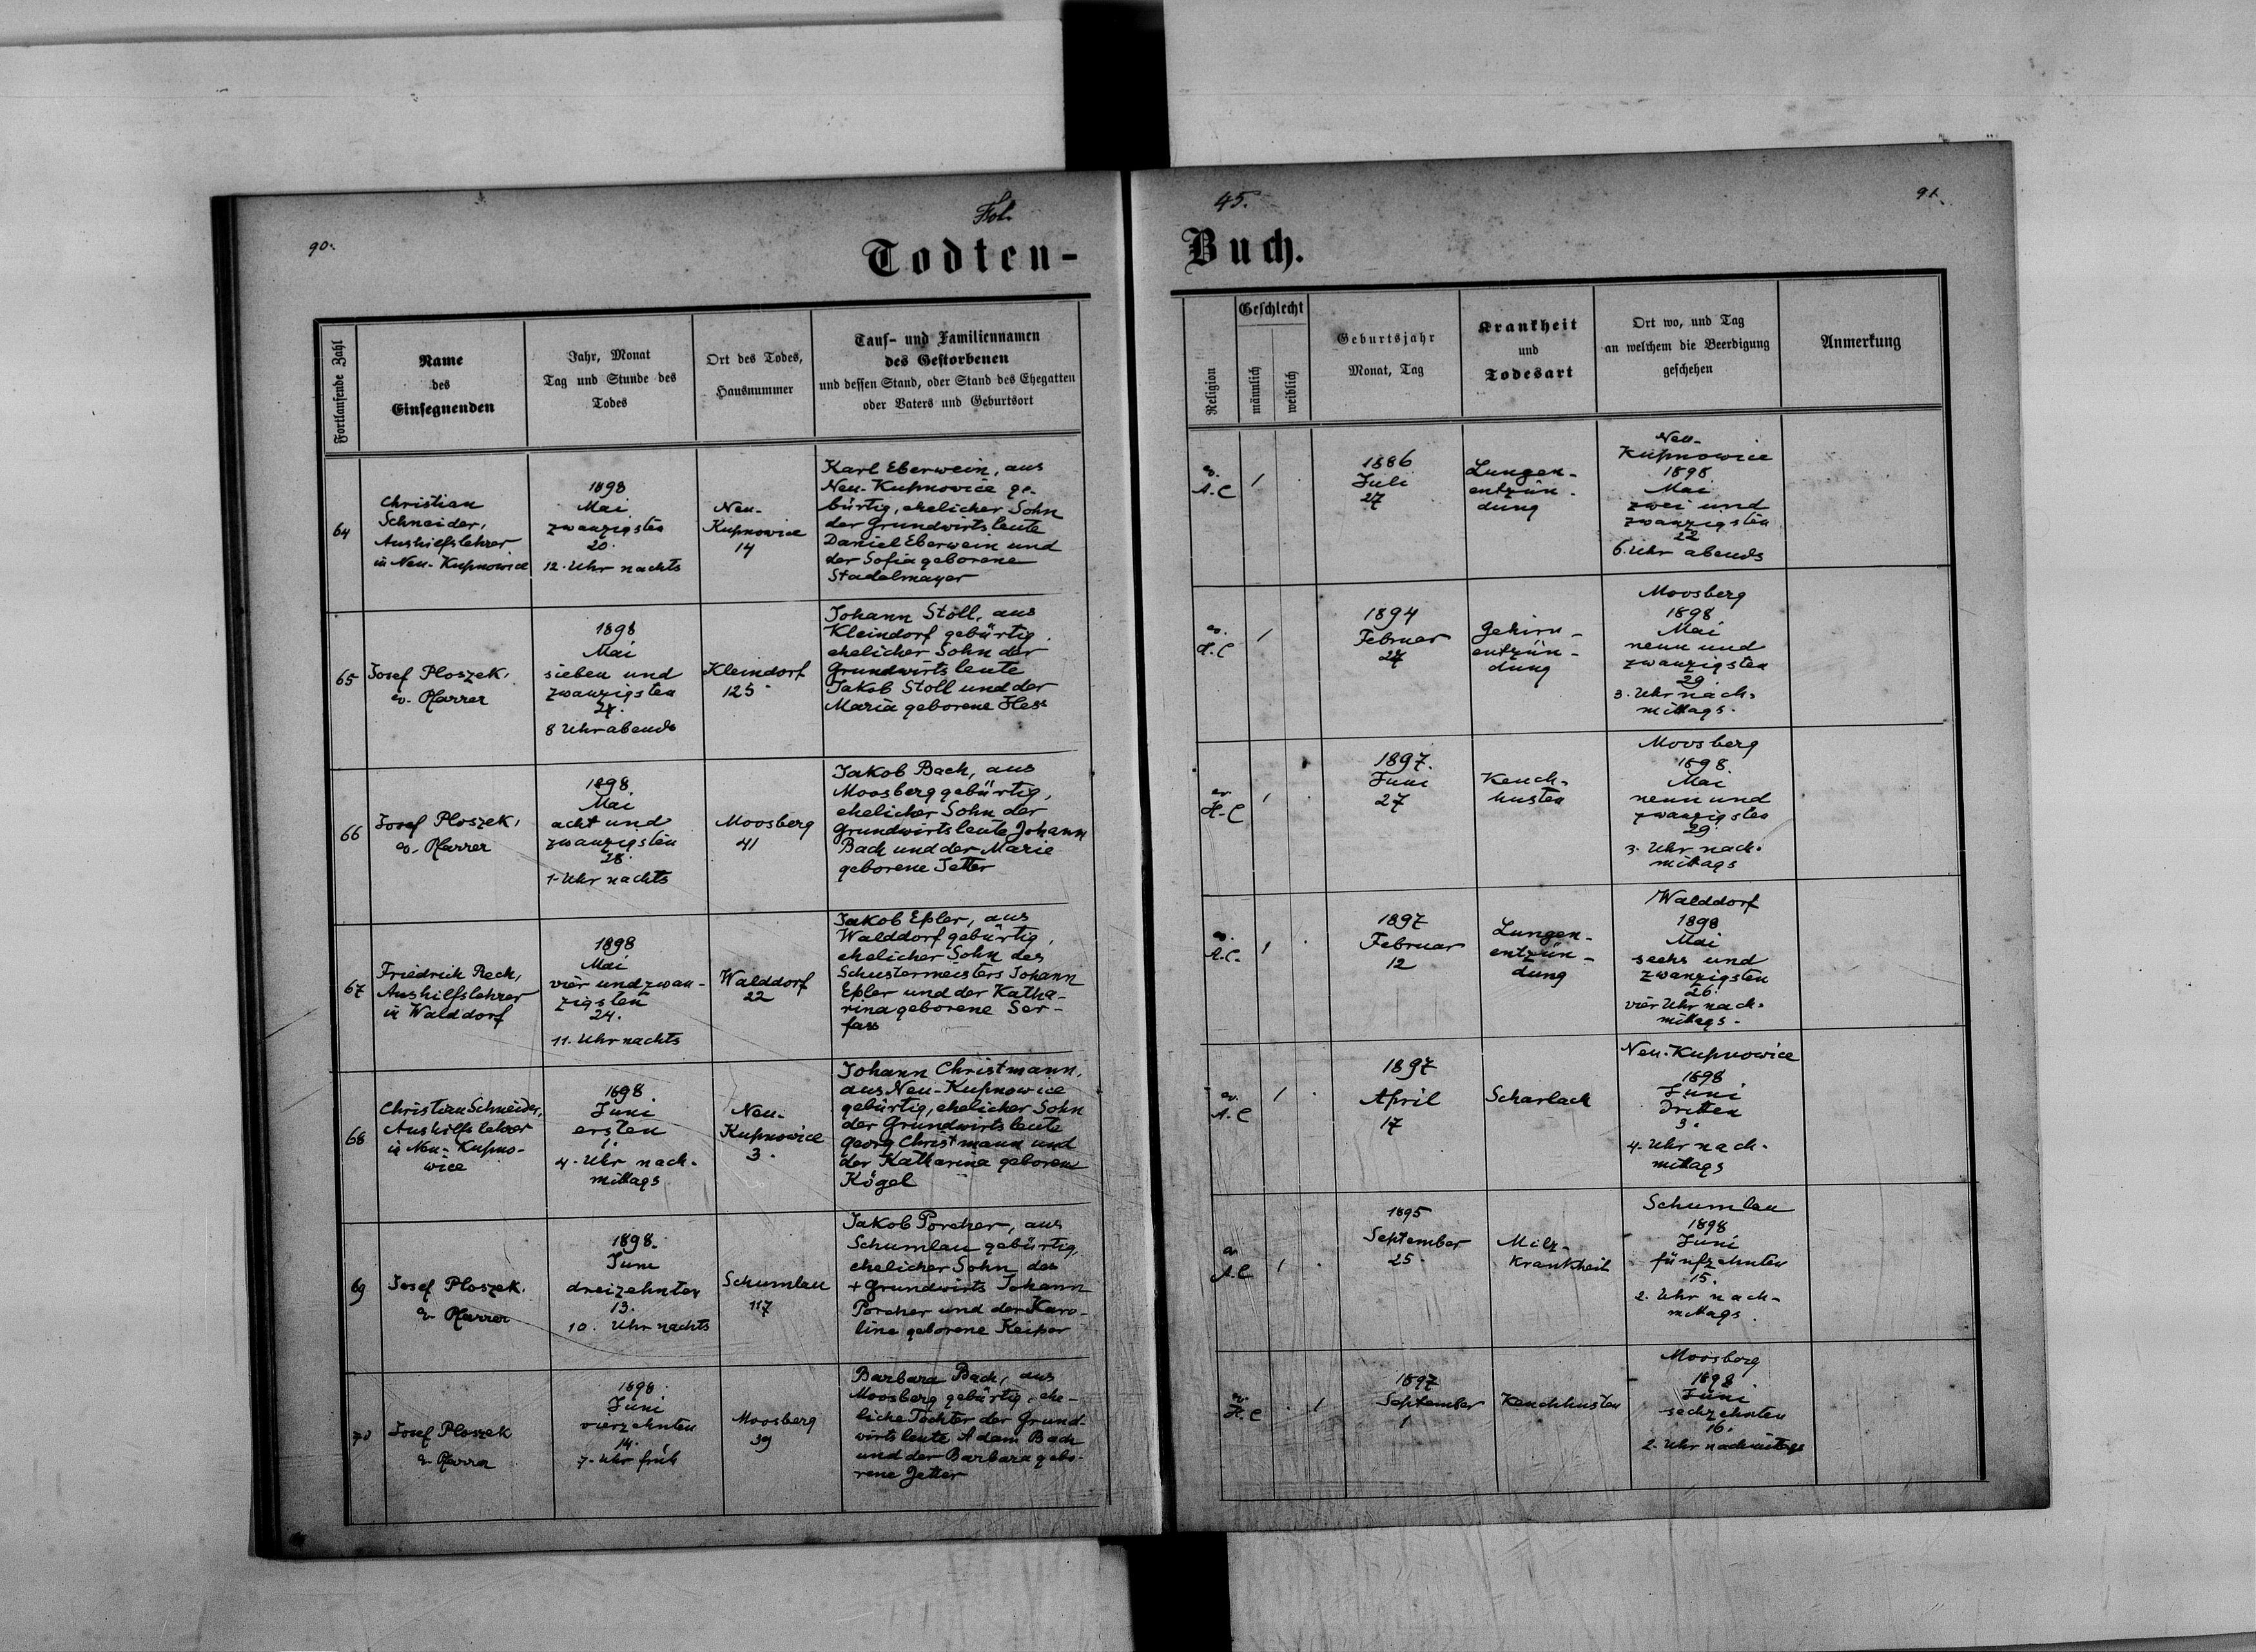 Fol. 45.
90. 91.
Todten- Buch.
Fortlaufende Zahl
Name
des
Einsegnenden
Jahr, Monat
Tag und Stunde des
Todes
Ort des Todes,
Hausnummer
Tauf- und Familiennamen
des Gestorbenen
und dessen Stand, oder Stand des Ehegatten
oder Vaters und Geburtsort
Religion
Geschlecht
männlich
weiblich
Geburtsjahr
Monat, Tag
Krankheit
und
Todesart
Ort wo, und Tag
an welchem die Beerdigung
geschehen
Anmerkung
64
Christian
Schneider,
Aushilfslehrer
in Neu-Kupnowice
1898
Mai
zwanzigsten
20.
12. Uhr nachts
Neu-
Kupnowice
14
Karl Eberwein, aus
Neu-Kupnovice ge-
bürtig, ehelicher Sohn
der Grundwirtsleute
Daniel Eberwein und
der Sofia geborene
Stadelmayer
ev.
A.C
1
1886
Juli
27
Lungen-
entzün-
dung
Neu-
Kupnowice
1898
Mai
zwei und
zwanzigsten
22
6. Uhr abends
65
Josef Ploszek,
ev. Pfarrer
1898
Mai
sieben und
zwanzigsten
27.
8 Uhr abends
Kleindorf
125
Johann Stoll, aus
Kleindorf gebürtig
ehelicher Sohn der
Grundwirtsleute
Jakob Stoll und der
Maria geborene Hess
ev.
H.C
1
1894
Februar
27
Gehirn-
entzün-
dung
Moosberg
1898
Mai
neun und
zwanzigsten
29.
3. Uhr nach-
mittags.
66
Josef Ploszek,
ev. Pfarrer
1898
Mai
acht und
zwanzigsten
28.
1. Uhr nachts
Moosberg
41
Jakob Bach, aus
Moosberg gebürtig,
ehelicher Sohn der
Grundwirtsleute Johann
Bach und der Marie
geborene Jetter
ev.
H.C
1
1897.
Juni
27
Keuch-
husten
Moosberg
1898.
Mai
neun und
zwanzigsten
29.
3. Uhr nach-
mittags
67
Friedrich Rech,
Aushilfslehrer
in Walddorf
1898
Mai
vier und zwan-
zigsten
24.
11. Uhr nachts
Walddorf
22
Jakob Epler, aus
Walddorf gebürtig,
ehelicher Sohn des
Schustermeisters Johann
Epler und der Katha-
rina geborene Ser-
fass
ev.
A.C.
1
1897
Februar
12
Lungen-
entzün-
dung
Walddorf
1898
Mai
sechs und
zwanzigsten
26.
vier Uhr nach-
mittags.
68
Christian Schneider,
Aushilfslehrer
in Neu-Kupno-
wice
1898
Juni
ersten
1.
4. Uhr nach-
mittags
Neu-
Kupnowice
3.
Johann Christmann,
aus Neu-Kupnowice
gebürtig, ehelicher Sohn
der Grundwirtsleute
Georg Christmann und
der Katharina geborene
Kögel
ev.
A.C
1
1897
April
17
Scharlach
Neu-Kupnowice
1898
Juni
Dritten
3.
4. Uhr nach-
mittags
69
Josef Ploszek.
ev. Pfarrer
1898.
Juni
dreizehnten
13.
10. Uhr nachts
Schumlau
117
Jakob Porcher, aus
Schumlau gebürtig,
ehelicher Sohn des
+ Grundwirts Johann
Porcher und der Karo-
line geborene Keiper
ev.
A.C
1
1895
September
25.
Milz-
Krankheit
Schumlau
1898
Juni
fünfzehnten
15.
2. Uhr nach-
mittags.
70
Josef Ploszek
ev. Pfarrer
1898.
Juni
vierzehnten
14.
7. Uhr früh
Moosberg
39
Barbara Bach, aus
Moosberg gebürtig, ehe-
liche Tochter der Grund-
wirtsleute Adam Bach
und der Barbara gebo-
rene Jetter
ev.
H.C
1
1897
September
1
Keuchhusten
Moosberg
1898.
Juni
sechzehnten
16.
2. Uhr nachmittags